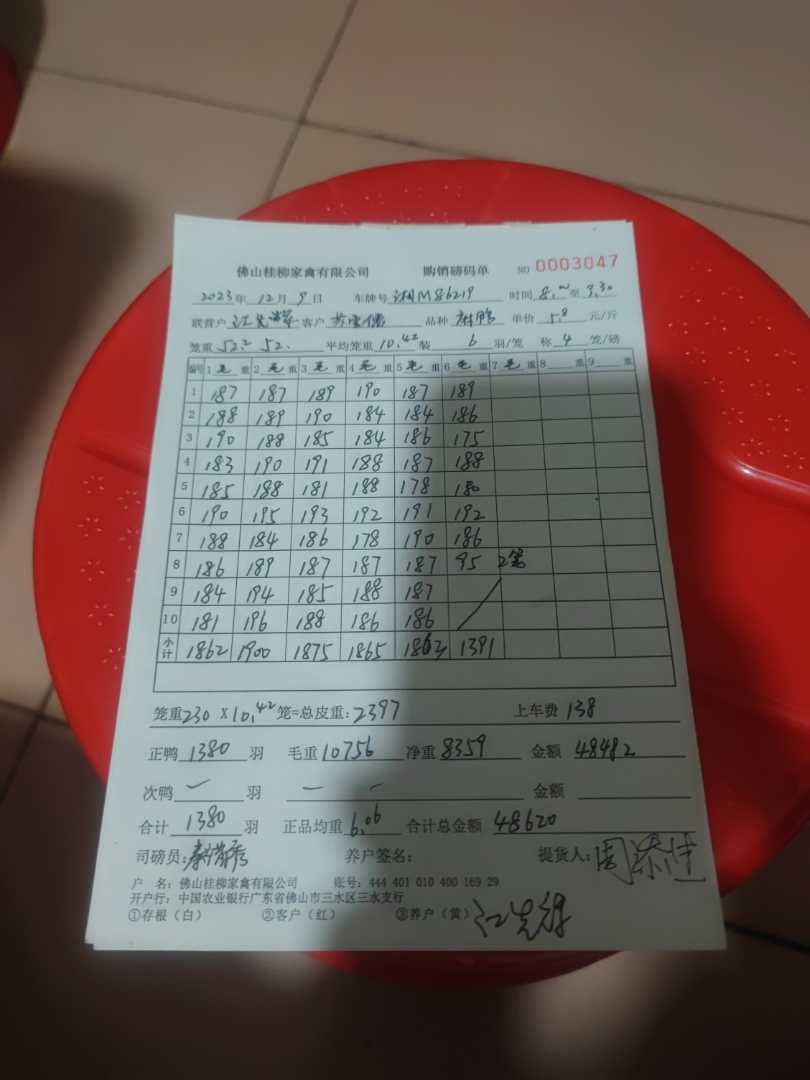 佛山桂柳家禽有限公司 购销磅码单 NO 0003047
2023年 12月 9日 车牌号 湘M86219 时间 8.00至 9.30
联营户 江先 客户 品种 单价 5.8 元/斤
笼重 52.2 52. 平均笼重 10.42 装 6 羽/笼 称 4 笼/磅
编号 1 毛 重 2 毛 重 3 毛 重 4 毛 重 5 毛 重 6 毛 重 7 毛 重 8 重 9 重
1 187 187 189 190 187 189
2 188 189 190 184 184 186
3 190 188 185 184 186 175
4 183 190 191 188 187 188
5 185 188 181 188 178 180
6 190 195 193 192 191 192
7 188 184 186 178 190 186
8 186 189 187 187 187 95 2笼
9 184 194 185 188 187
10 181 196 188 186 186
小计 1862 1900 1875 1865 1863 1391
笼重230 X 10.42 笼=总皮重: 2397 上车费 138
正鸭 1380 羽 毛重 10756 净重 8359 金额 48482
次鸭 一 羽 一 一 金额
合计 1380 羽 正品均重 6.06 合计总金额 48620
司磅员: 养户签名: 提货人: 周添佳
户 名: 佛山桂柳家禽有限公司 账号: 444 401 010 400 169 29
开户行: 中国农业银行广东省佛山市三水区三水支行
①存根(白) ②客户(红) ③养户(黄) 江先